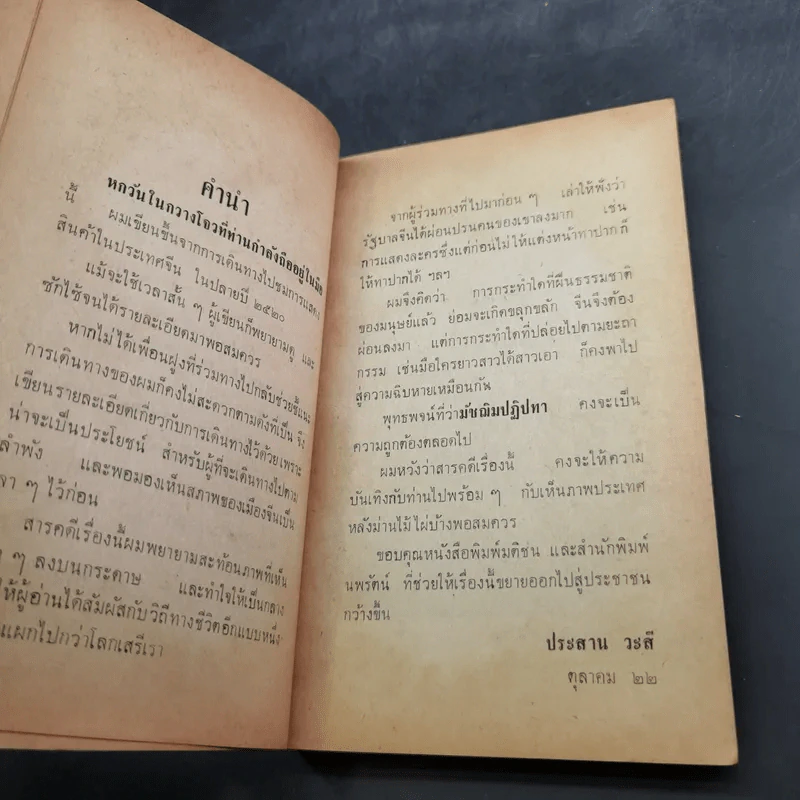 คำนำ
หกวันในกวางโจวที่ท่านกำลังถืออยู่ในมือ
นี้ ผมเขียนขึ้นจากการเดินทางไปชมการแสดง
สินค้าในประเทศจีน ในปลายปี ๒๕๒๐
แม้จะใช้เวลาสั้น ๆ ผู้เขียนก็พยายามดู และ
ซักไซ้จนได้รายละเอียดมาพอสมควร
หากไม่ได้เพื่อนฝูงที่ร่วมทางไปกลับช่วยชี้แนะ
การเดินทางของผมก็คงไม่สะดวกตามดังที่เป็น จึง
เขียนรายละเอียดเกี่ยวกับการเดินทางไว้ด้วยเพราะ
น่าจะเป็นประโยชน์ สำหรับผู้ที่จะเดินทางไปตาม
ลำพัง และพอมองเห็นสภาพของเมืองจีนเป็น
ๆ ไว้ก่อน
สารคดีเรื่องนี้ผมพยายามสะท้อนภาพที่เห็น
ๆ ลงบนกระดาษ และทำใจให้เป็นกลาง
ให้ผู้อ่านได้สัมผัสกับวิถีทางชีวิตอีกแบบหนึ่ง
แผกไปกว่าโลกเสรีเรา
จากผู้ร่วมทางที่ไปมาก่อน ๆ เล่าให้ฟังว่า
รัฐบาลจีนได้ผ่อนปรนคนของเขาลงมาก เช่น
การแสดงละครซึ่งแต่ก่อนไม่ให้แต่งหน้าทาปาก ก็
ให้ทาปากได้ ฯลฯ
ผมจึงคิดว่า การกระทำใดที่ฝืนธรรมชาติ
ของมนุษย์แล้ว ย่อมจะเกิดขลุกขลัก จีนจึงต้อง
ผ่อนลงมา แต่การกระทำใดที่ปล่อยไปตามยะถา
กรรม เช่นมือใครยาวสาวได้สาวเอา ก็คงพาไป
สู่ความฉิบหายเหมือนกัน
พุทธพจน์ที่ว่ามัชฌิมปฏิปทา คงจะเป็น
ความถูกต้องตลอดไป
ผมหวังว่าสารคดีเรื่องนี้ คงจะให้ความ
บันเทิงกับท่านไปพร้อม ๆ กับเห็นภาพประเทศ
หลังม่านไม้ไผ่บ้างพอสมควร
ขอบคุณหนังสือพิมพ์มติชน และสำนักพิมพ์
นพรัตน์ ที่ช่วยให้เรื่องนี้ขยายออกไปสู่ประชาชน
กว้างขึ้น
ประสาน วะสี
ตุลาคม ๒๒